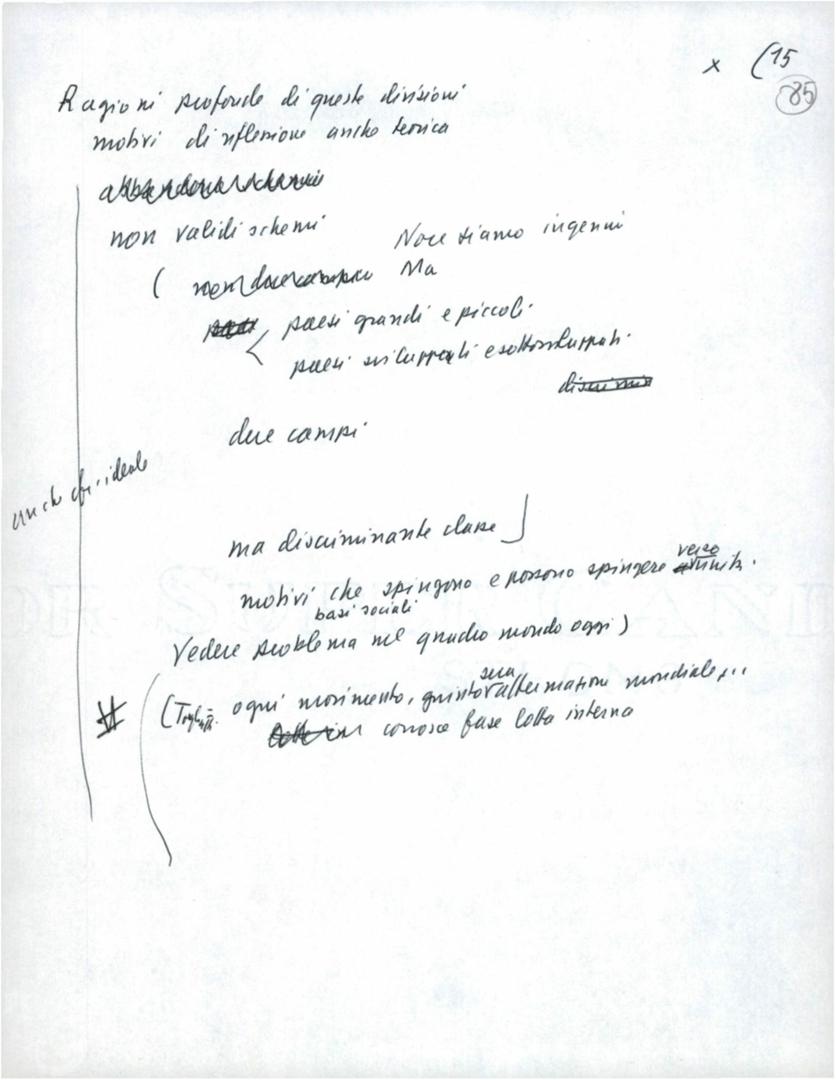 x (15
85
Ragioni profonde di queste divisioni
motivi di riflessione anche teorica
non validi schemi
Non siamo ingenui
( Ma
paesi grandi e piccoli
paesi sviluppati e sottosviluppati
due campi
anche ideale
ma discriminante classe ]
motivi che spingono e possono spingere verso unità.
basi sociali
Vedere problema nel quadro mondo oggi)
(Togliatti. ogni movimento, giunto sua affermazione mondiale, ..
conosce fase lotta interna